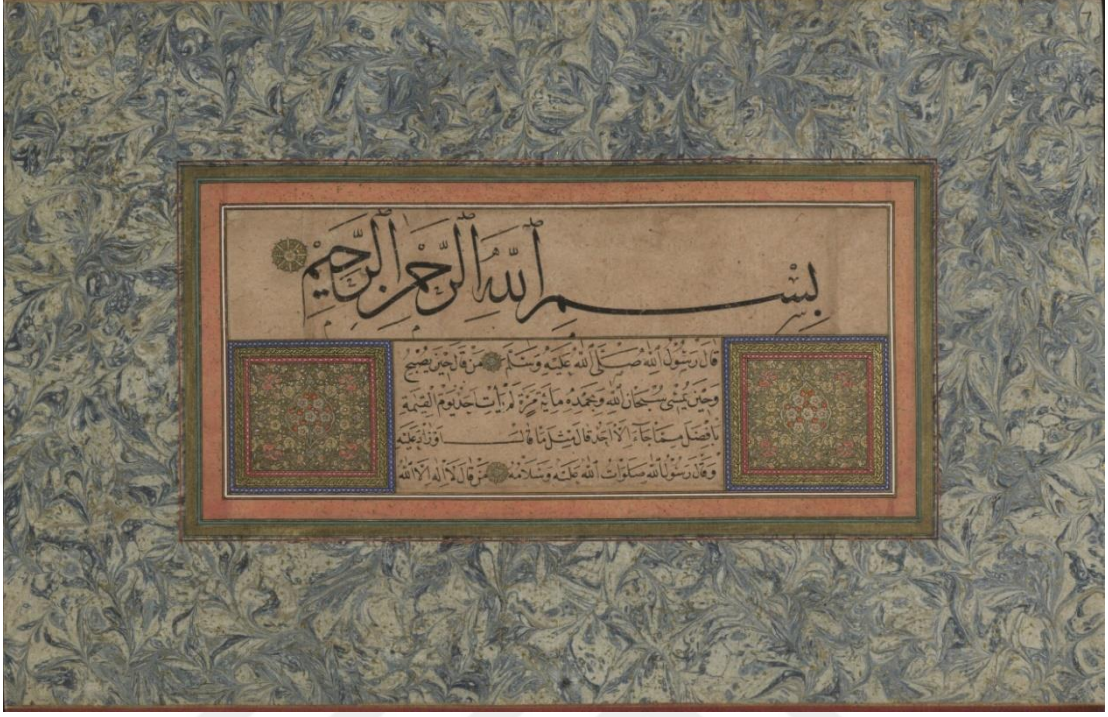 7
بِسْمِ ٱللَّهِ ٱلرَّحْمٰنِ ٱلرَّحِيْمِ
قَالَ رَسُولُ اللهِ صَلَّى اللهُ عَلَيْهِ وَسَلَّمَ مَنْ قَالَ حِيْنَ يُصْبِحُ
وَحِيْنَ يُمْسِي سُبْحَانَ اللهِ وَبِحَمْدِهِ مِايَةَ مَرَّةٍ لَمْ يَأْتِ اَحَدٌ يَوْمَ الْقِيٰمَةِ
بِاَفْضَلَ مِمَّا جَآءَ اِلَّا اَحَدٌ قَالَ مِثْلَ مَا قَالَ اَوْ زَادَ عَلَيْهِ
وَقَالَ رَسُولُ اللهِ صَلَوَاتُ اللهِ عَلَيْهِ وَسَلَامُهُ مَنْ قَالَ لَا اِلٰهَ اِلَّا اللهُ